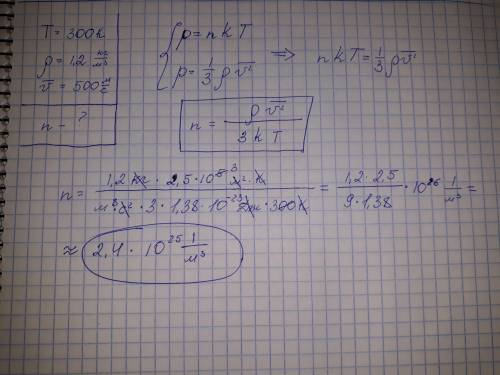 T = 300 K
ρ = 1,2 кг/м³
v̅ = 500 м/с
n - ?
{ p = n k T
p = 1/3 ρ v̅² ⇒ n k T = 1/3 ρ v̅²
n = ρ v̅² / 3 k T
n = 1,2 кг · 2,5 · 10⁵ м² · К / м³ · с² · 3 · 1,38 · 10⁻²³ Дж · 300 К = 1,2 · 2,5 / 9 · 1,38 · 10²⁶ 1/м³ =
≈ 2,4 · 10²⁵ 1/м³